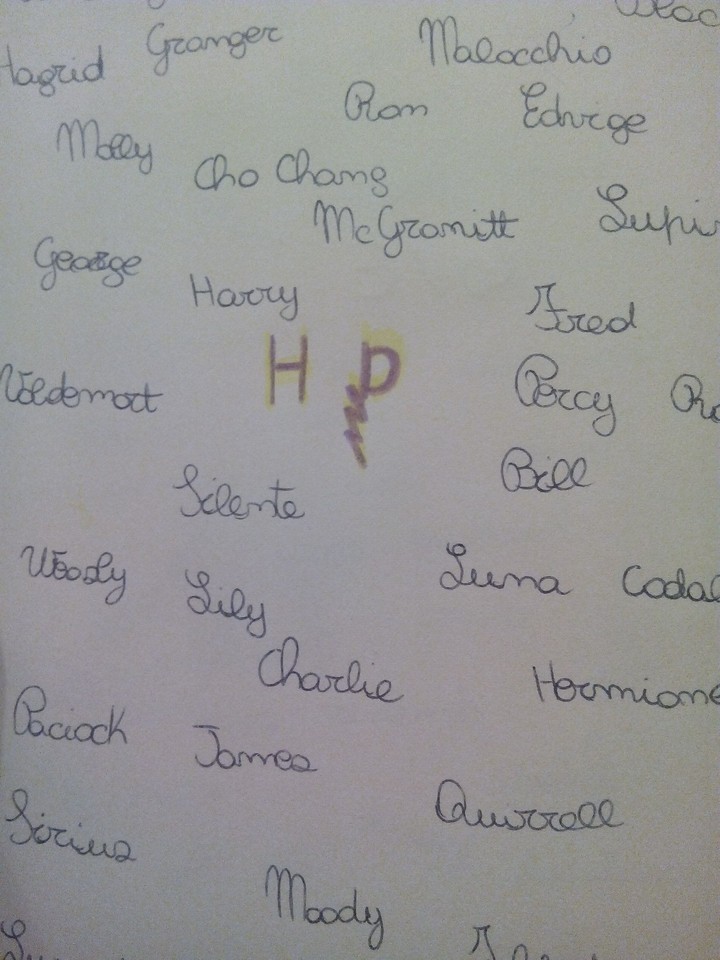 Granger
Malocchio
Hagrid
Ron
Edvige
Molly
Cho Chang
McGranitt
Lupi
George
Harry
Fred
H P
Voldemort
Percy
Bill
Silente
Weasly
Lily
Luna
Codal
Charlie
Hermione
Paciock
James
Quirrell
Sirius
Moody